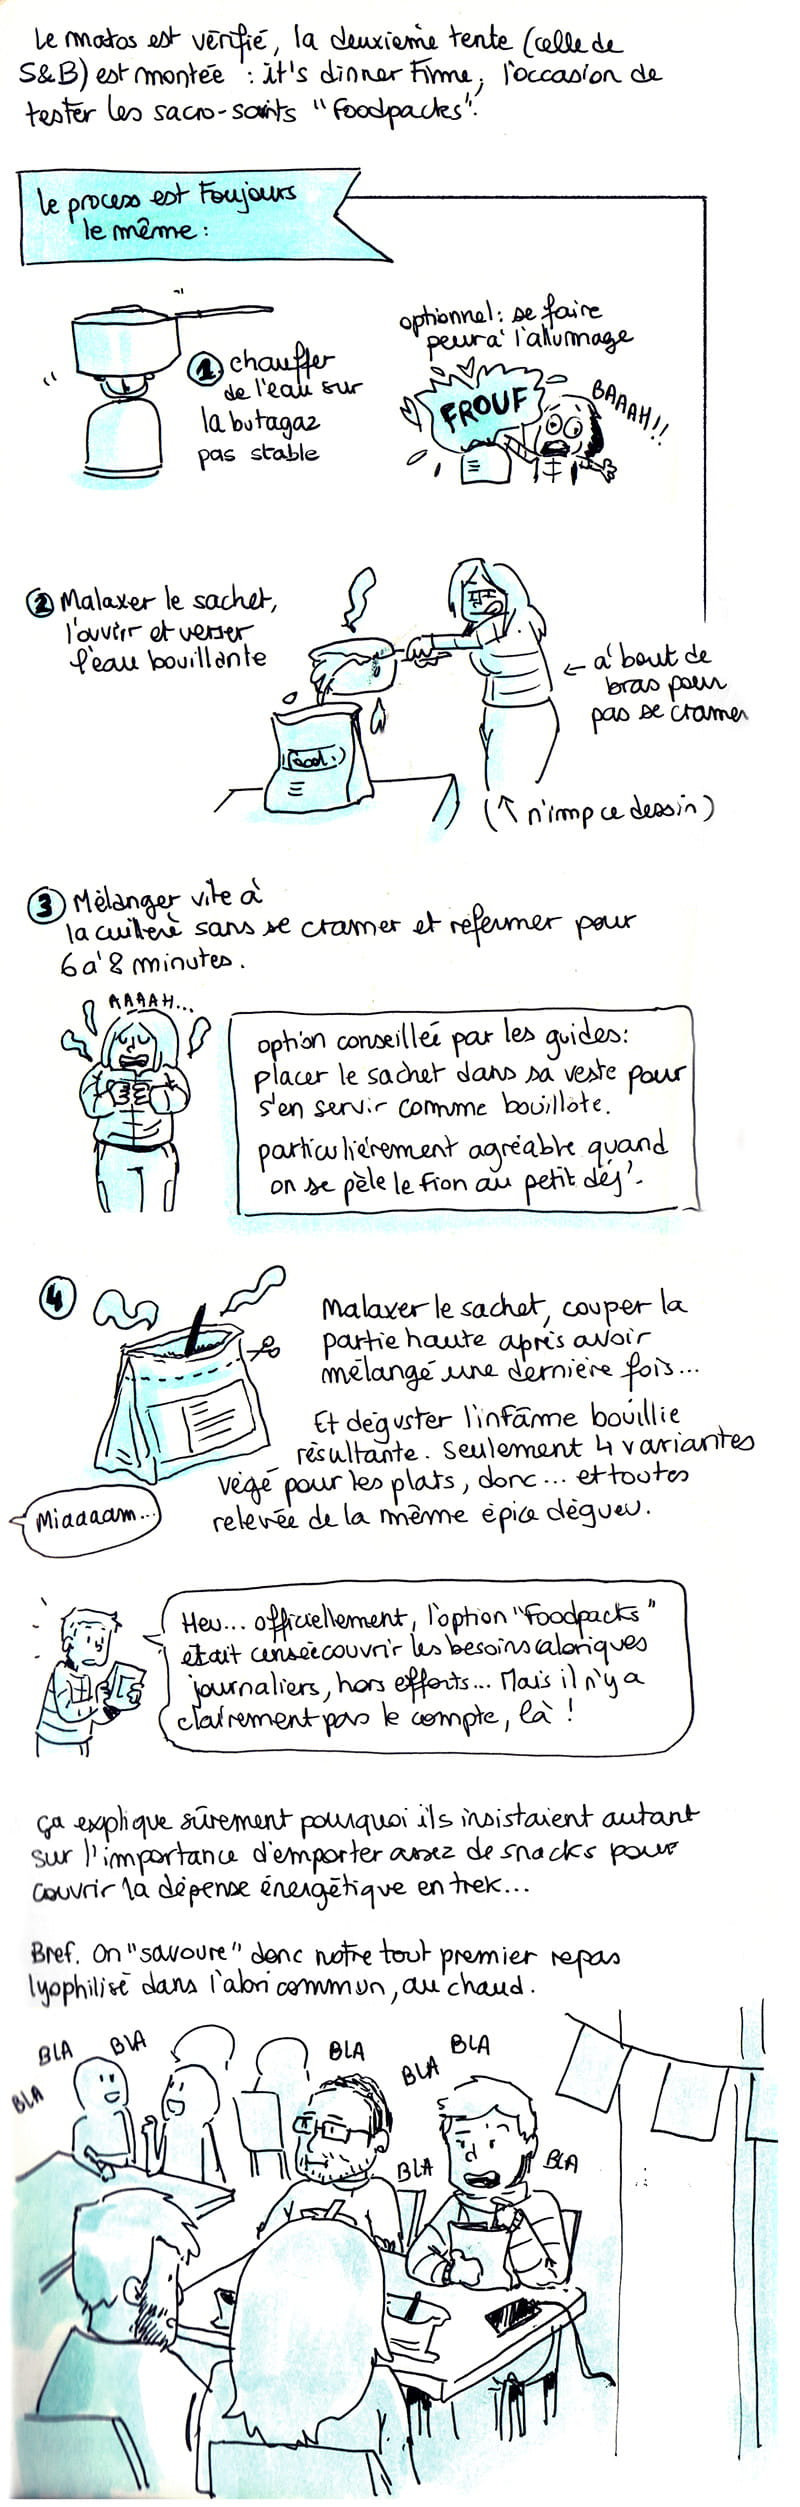 Le matos est vérifié, la deuxième tente (celle de
S&B) est montée : it's dinner time, l'occasion de
tester les sacro-saints "foodpacks".
Le process est toujours
le même :
1. chauffer
de l'eau sur
la butagaz
pas stable
optionnel : se faire
peur à l'allumage
FROUF
BAAAH!!
2 Malaxer le sachet,
l'ouvrir et verser
l'eau bouillante
Food :)
← à bout de
bras pour
pas se cramer
(↑ n'imp ce dessin)
3 Mélanger vite à
la cuillère sans se cramer et refermer pour
6 à 8 minutes.
AAAAH...
option conseillée par les guides :
placer le sachet dans sa veste pour
s'en servir comme bouillote.
particulièrement agréable quand
on se pèle le fion au petit déj'.
4
Malaxer le sachet, couper la
partie haute après avoir
mélangé une dernière fois...
Et déguster l'infâme bouillie
résultante. Seulement 4 variantes
végé pour les plats, donc... et toutes
relevée de la même épice dégueu.
Miaaaam...
Heu... officiellement, l'option "Foodpacks"
était censée couvrir les besoins caloriques
journaliers, hors efforts... Mais il n'y a
clairement pas le compte, là !
ça explique sûrement pourquoi ils insistaient autant
sur l'importance d'emporter assez de snacks pour
couvrir la dépense énergétique en trek...
Bref. On "savoure" donc notre tout premier repas
lyophilisé dans l'abri commun, au chaud.
BLA
BLA
BLA
BLA
BLA
BLA
BLA
BLA